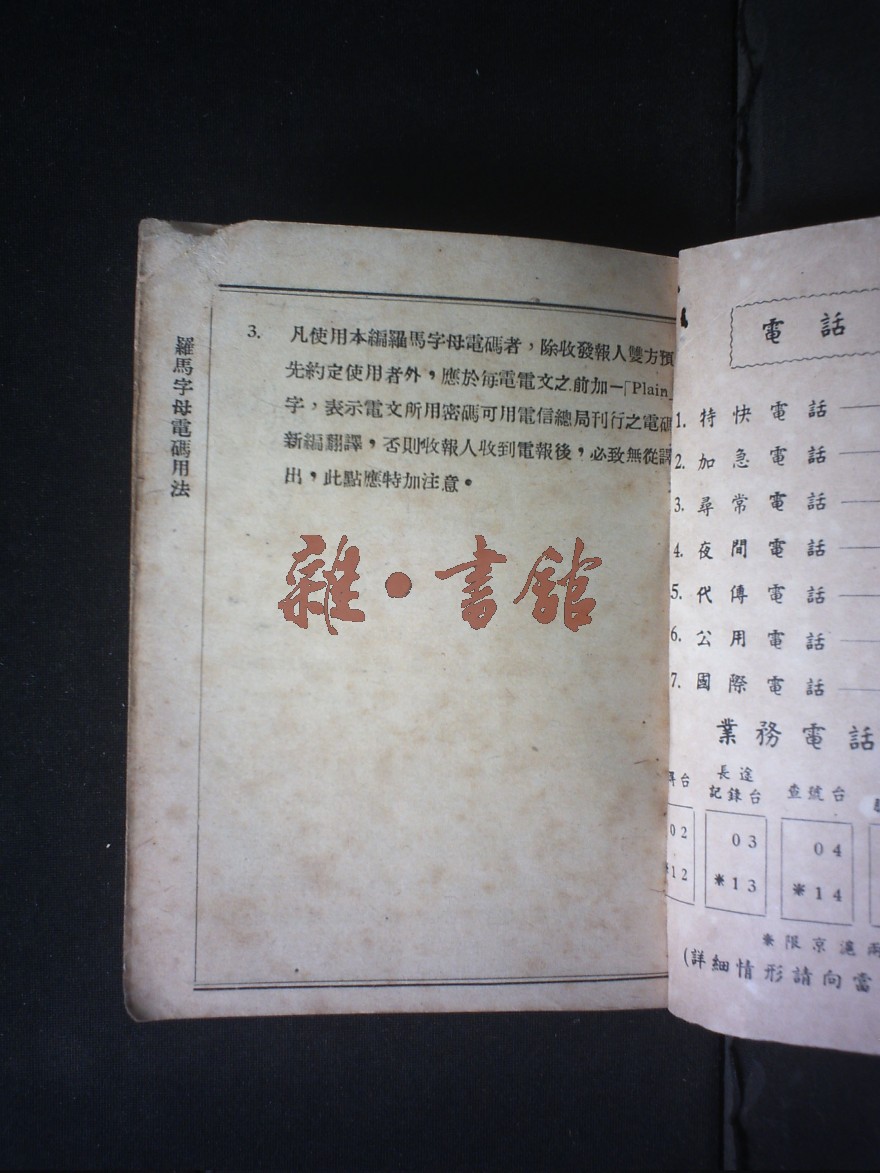 羅馬字母電碼用法
3. 凡使用本編羅馬字母電碼者，除收發報人雙方預
先約定使用者外，應於每電電文之前加一「Plain」
字，表示電文所用密碼可用電信總局刊行之電碼
新編翻譯，否則收報人收到電報後，必致無從譯
出，此點應特加注意。
雜·書館
電話
1. 特快電話
2. 加急電話
3. 尋常電話
4. 夜間電話
5. 代傳電話
6. 公用電話
7. 國際電話
業務電話
台 長途記錄台 查號台
02 03 04
*12 *13 *14
*限京滬兩
(詳細情形請向當